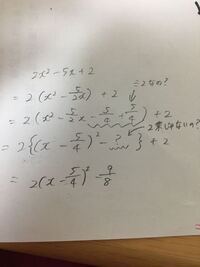 2x² - 5x + 2
= 2 (x² - 5/2 x) + 2
= 2 (x² - 5/2 x - 5/4 + 5/4) + 2
2乗じゃないの?
= 2 {(x - 5/4)² - ?} + 2
= 2 (x - 5/4)² - 9/8